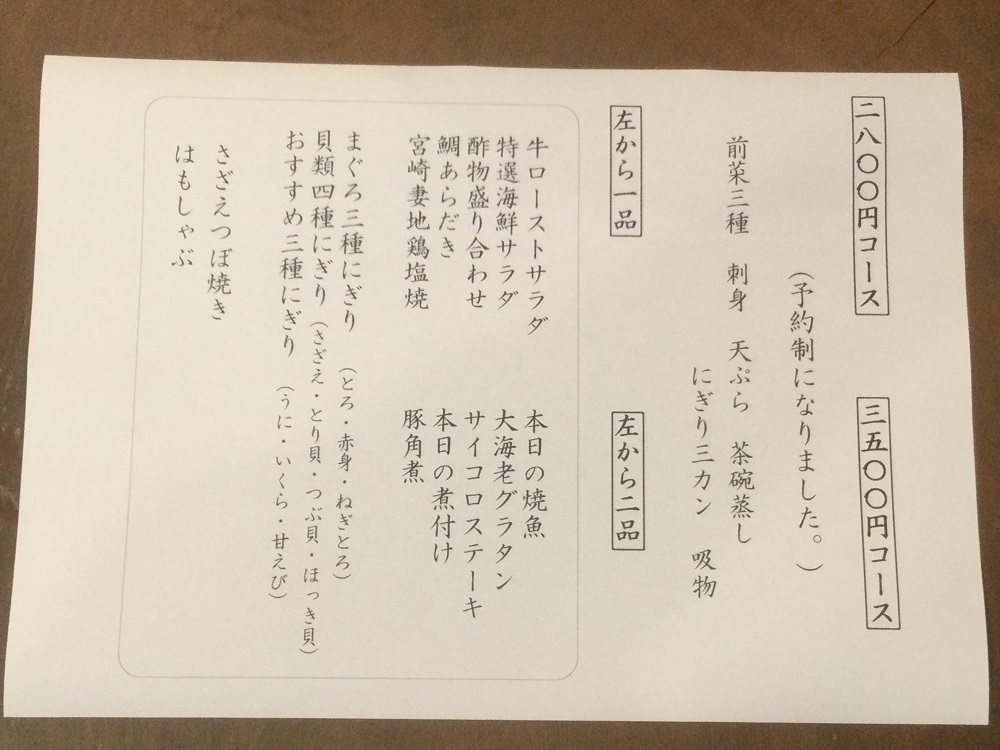 二八〇〇円コース
三五〇〇円コース
(予約制になりました。)
前菜三種 刺身 天ぷら 茶碗蒸し
にぎり三カン 吸物
左から一品
左から二品
牛ローストサラダ
特選海鮮サラダ
酢物盛り合わせ
鯛あらだき
宮崎妻地鶏塩焼
本日の焼魚
大海老グラタン
サイコロステーキ
本日の煮付け
豚角煮
まぐろ三種にぎり (とろ・赤身・ねぎとろ)
貝類四種にぎり (さざえ・とり貝・つぶ貝・ほっき貝)
おすすめ三種にぎり (うに・いくら・甘えび)
さざえつぼ焼き
はもしゃぶ